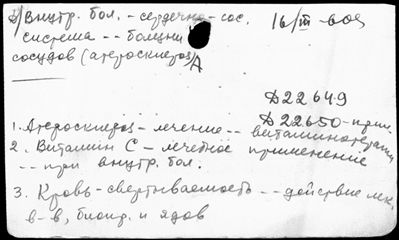 1) Внутр. бол. - сердечно-сос. 16/III-60г
система -- болезни
сосудов (атеросклероз) А
Д22649
Д22650-прил.
1. Атеросклероз - лечение -- витаминотерапия
2. Витамин С - лечебное применение
-- при внутр. бол.
3. Кровь - свертываемость -- действие лек.
в-в, биопр. и ядов